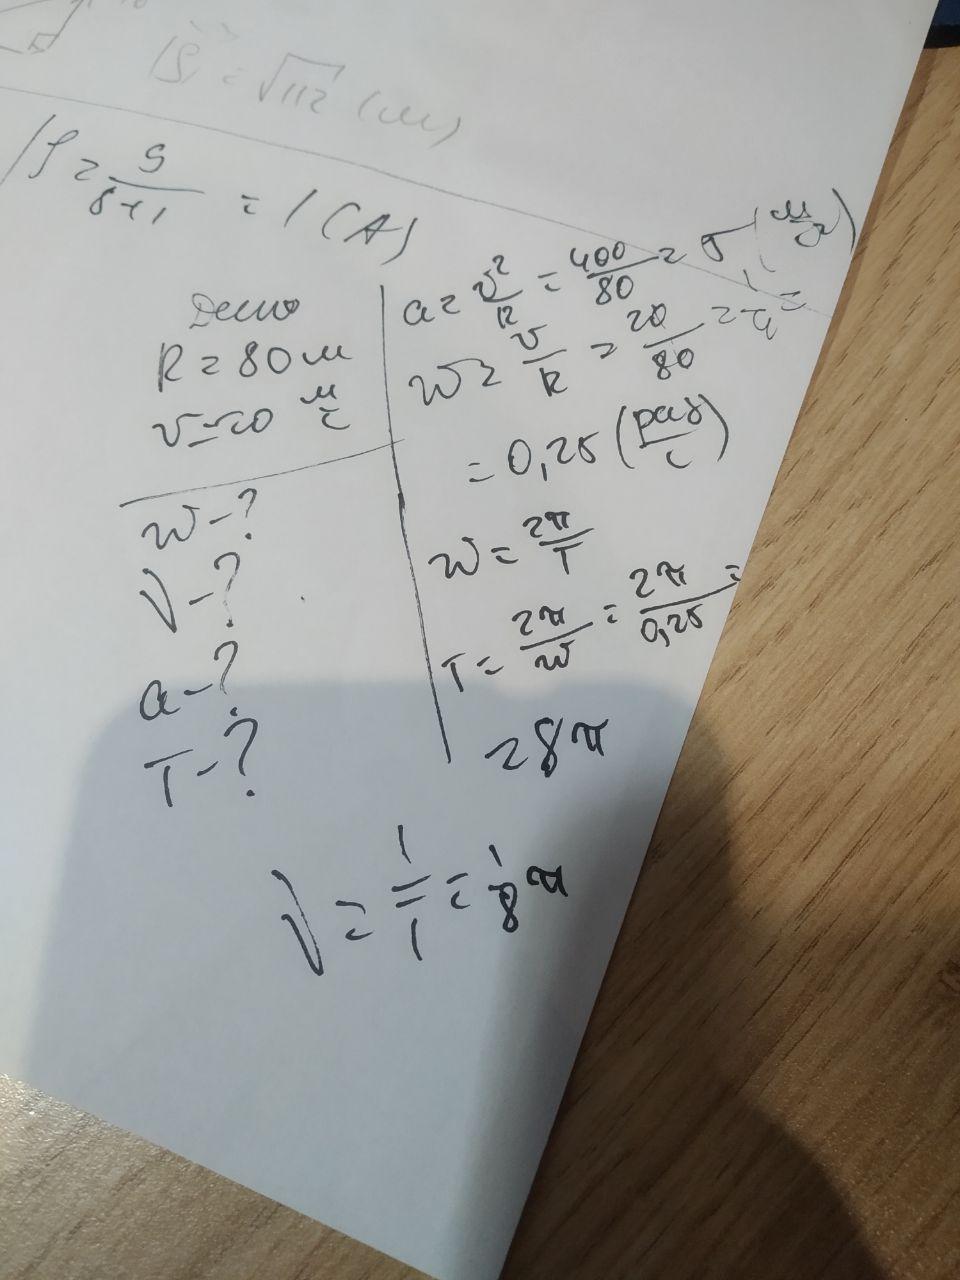 = √112 (м)
= 1 (A)
Дано
R = 80 м
v = 20 м/с
w - ?
ν - ?
a - ?
T - ?
a = v²/R = 400/80 = 5 (м/с²)
w = v/R = 20/80 = 1/4 =
= 0,25 (рад/с)
w = 2π/T
T = 2π/w = 2π/0,25 =
= 8π
ν = 1/T = 1/8π